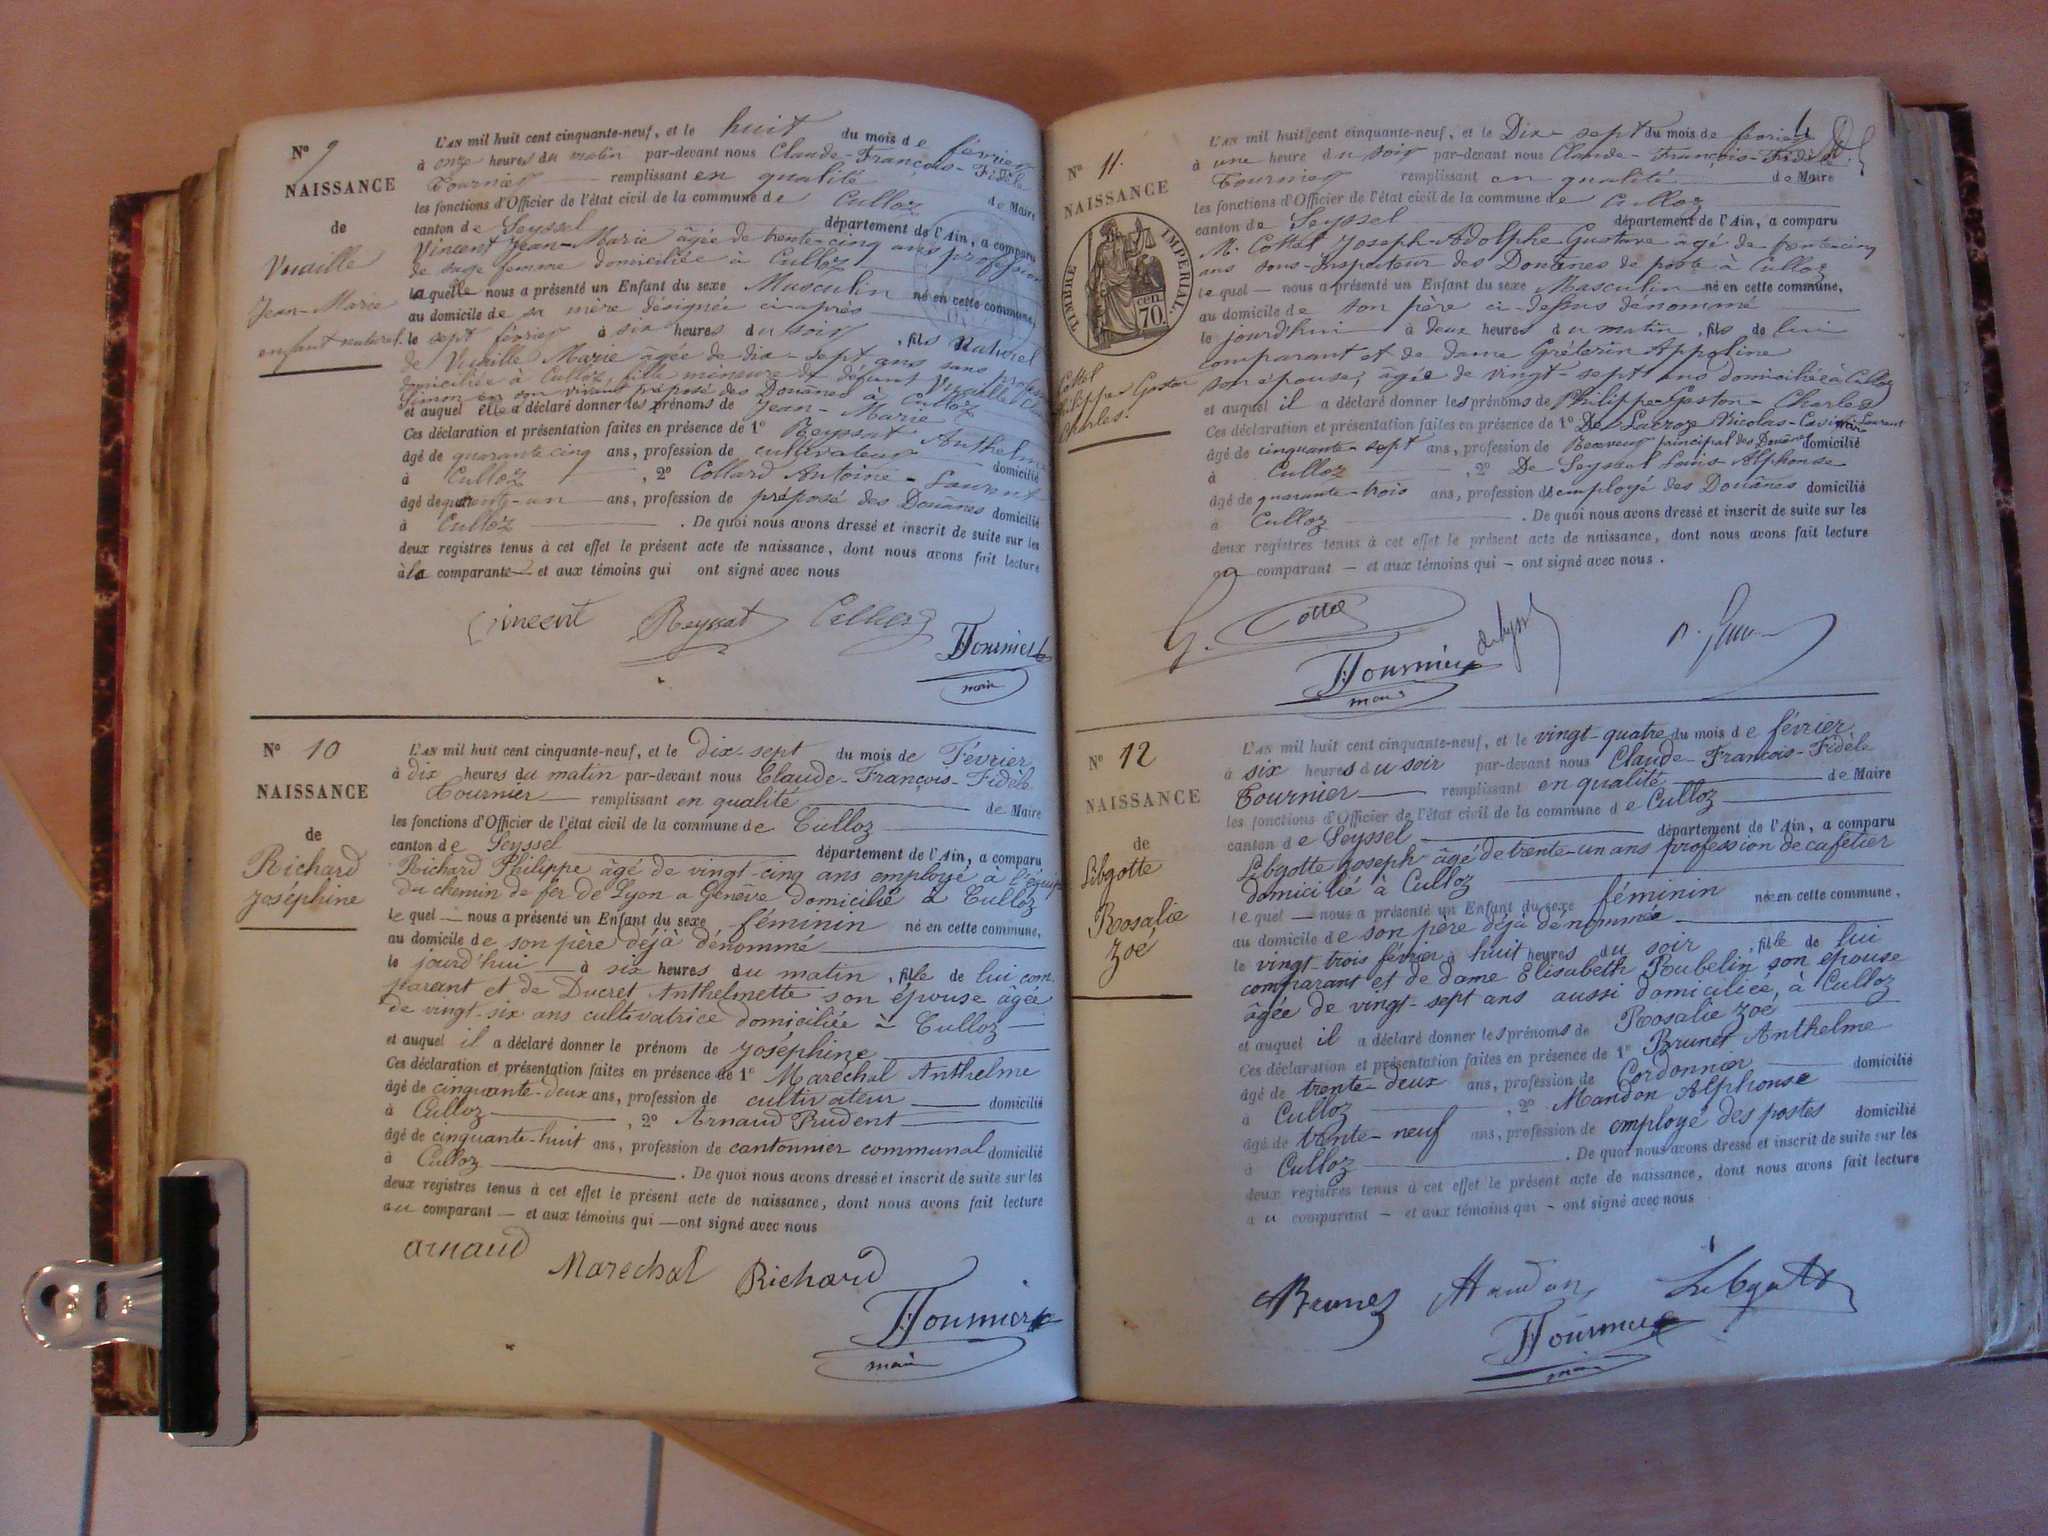 N° 9
NAISSANCE
de
Vuaille
Jean-Marie
enfant naturel.
L'AN mil huit cent cinquante-neuf, et le huit du mois de février
à onze heures du matin par-devant nous Claude-François-Fidèle
Fournier remplissant en qualité de Maire
les fonctions d'Officier de l'état civil de la commune de Culloz
canton de Seyssel département de l'Ain, a comparu
Vincent Jean-Marie âgée de trente-cinq ans profession
de sage femme domiciliée à Culloz
laquelle nous a présenté un Enfant du sexe Masculin né en cette commune,
au domicile de sa mère désignée ci-après
le sept février à six heures du soir, fils Naturel
de Vuaille Marie âgée de dix-sept ans sans
domiciliée à Culloz, fille mineure de défunt Vuaille
Simon en son vivant préposé des Douanes à Culloz
et auquel elle a déclaré donner les prénoms de Jean-Marie
Ces déclaration et présentation faites en présence de 1° Reyssat Anthelme
âgé de quarante cinq ans, profession de cultivateur domicilié
à Culloz, 2° Collard Antoine-Laurent
âgé de ans, profession de préposé des Douanes domicilié
à Culloz. De quoi nous avons dressé et inscrit de suite sur les
deux registres tenus à cet effet le présent acte de naissance, dont nous avons fait lecture
à la comparante et aux témoins qui ont signé avec nous
Vincent Reyssat
Fournier
maire
N° 10
NAISSANCE
de
Richard
Joséphine
L'AN mil huit cent cinquante-neuf, et le dix-sept du mois de Février
à dix heures du matin par-devant nous Claude-François-Fidèle
Fournier remplissant en qualité de Maire
les fonctions d'Officier de l'état civil de la commune de Culloz
canton de Seyssel département de l'Ain, a comparu
Richard Philippe âgé de vingt-cinq ans employé à
Du chemin de fer de Lyon a Genève domicilié à Culloz
lequel nous a présenté un Enfant du sexe féminin né en cette commune,
au domicile de son père déjà dénommé
le jourd'hui à six heures du matin, fille de lui com
parant et de Ducret Anthelmette son épouse âgée
de vingt-six ans cultivatrice domiciliée à Culloz
et auquel il a déclaré donner le prénom de Joséphine
Ces déclaration et présentation faites en présence de 1° Maréchal Anthelme
âgé de cinquante-deux ans, profession de cultivateur domicilié
à Culloz, 2° Arnaud Prudent
âgé de cinquante-huit ans, profession de cantonnier communal domicilié
à Culloz. De quoi nous avons dressé et inscrit de suite sur les
deux registres tenus à cet effet le présent acte de naissance, dont nous avons fait lecture
au comparant et aux témoins qui ont signé avec nous
arnaud Marechal Richard
Fournier
maire
N° 11.
NAISSANCE
TIMBRE IMPERIAL.
70 cen.
Cottel
Philippe Gaston
Charles.
L'AN mil huit cent cinquante-neuf, et le Dix-sept du mois de février
à une heure du soir par-devant nous Claude-François-Fidèle
Fournier remplissant en qualité de Maire
les fonctions d'Officier de l'état civil de la commune de Culloz
canton de Seyssel département de l'Ain, a comparu
M. Cottel Joseph-Adolphe Gustave âgé de
ans sous-Inspecteur des Douanes de poste à Culloz
lequel nous a présenté un Enfant du sexe Masculin né en cette commune,
au domicile de son père ci-dessus dénommé
le jourd'hui à deux heures du matin, fils de lui
comparant et de dame Gréterin Appoline
son épouse, âgée de vingt-sept ans domiciliée à Culloz
et auquel il a déclaré donner les prénoms de Philippe-Gaston-Charles
Ces déclaration et présentation faites en présence de 1° De Lacroze Nicolas-Casimir Laurent
âgé de cinquante-sept ans, profession de Receveur principal des Douanes domicilié
à Culloz, 2° De Seyssel Louis-Alphonse
âgé de quarante-trois ans, profession d'employé des Douanes domicilié
à Culloz. De quoi nous avons dressé et inscrit de suite sur les
deux registres tenus à cet effet le présent acte de naissance, dont nous avons fait lecture
comparant et aux témoins qui ont signé avec nous.
G. Cottel
Fournier
maire
N° 12
NAISSANCE
de
Libgotte
Rosalie
Zoé
L'AN mil huit cent cinquante-neuf, et le vingt-quatre du mois de février
à six heures du soir par-devant nous Claude-François-Fidèle
Fournier remplissant en qualité de Maire
les fonctions d'Officier de l'état civil de la commune de Culloz
canton de Seyssel département de l'Ain, a comparu
Libgotte Joseph âgé de trente-un ans profession de cafetier
domicilié à Culloz
lequel nous a présenté un Enfant du sexe féminin né en cette commune,
au domicile de son père déjà dénommée
le vingt-trois février à huit heures du soir, fille de lui
comparant et de dame Elisabeth Roubelin son épouse
âgée de vingt-sept ans aussi domiciliée, à Culloz
et auquel il a déclaré donner les prénoms de Rosalie Zoé
Ces déclaration et présentation faites en présence de 1° Brunet Anthelme
âgé de trente-deux ans, profession de Cordonnier domicilié
à Culloz, 2° Mandon Alphonse
âgé de ans, profession de employé des postes domicilié
à Culloz. De quoi nous avons dressé et inscrit de suite sur les
deux registres tenus à cet effet le présent acte de naissance, dont nous avons fait lecture
au comparant et aux témoins qui ont signé avec nous
Brunet Mandon Libgotte
Fournier
maire